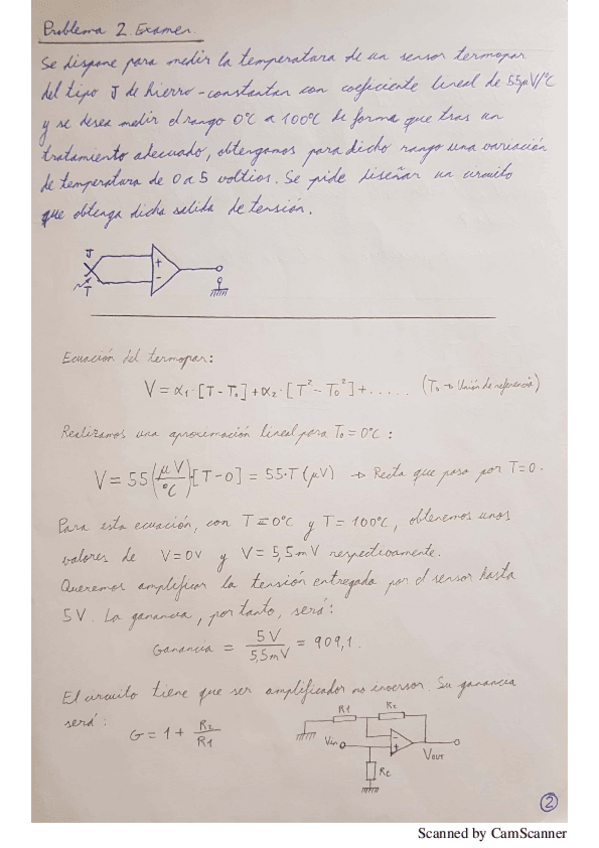 Problema 2 Examen.
Se dispone para medir la temperatura de un sensor termopar
del tipo J de hierro-constantan con coeficiente lineal de 55μV/°C
y se desea medir el rango 0°C a 100°C de forma que tras un
tratamiento adecuado, obtengamos para dicho rango una variación
de temperatura de 0 a 5 voltios. Se pide diseñar un circuito
que obtenga dicha salida de tensión.
J
+
-
T
Ecuación del termopar:
V = α1·[T-T0]+α2·[T²-T0²]+..... (T0 → Unión de referencia)
Realizamos una aproximación lineal para T0=0°C:
V = 55(μV/°C)·[T-0] = 55·T(μV) → Recta que pasa por T=0.
Para esta ecuación, con T=0°C y T=100°C, obtenemos unos
valores de V=0V y V=5,5mV respectivamente.
Queremos amplificar la tensión entregada por el sensor hasta
5V. La ganancia, por tanto, será:
Ganancia = 5V/5,5mV = 909,1.
El circuito tiene que ser amplificador no inversor. Su ganancia
será:
G = 1 + R2/R1
R1
R2
-
+
Vin
Vout
2
Scanned by CamScanner